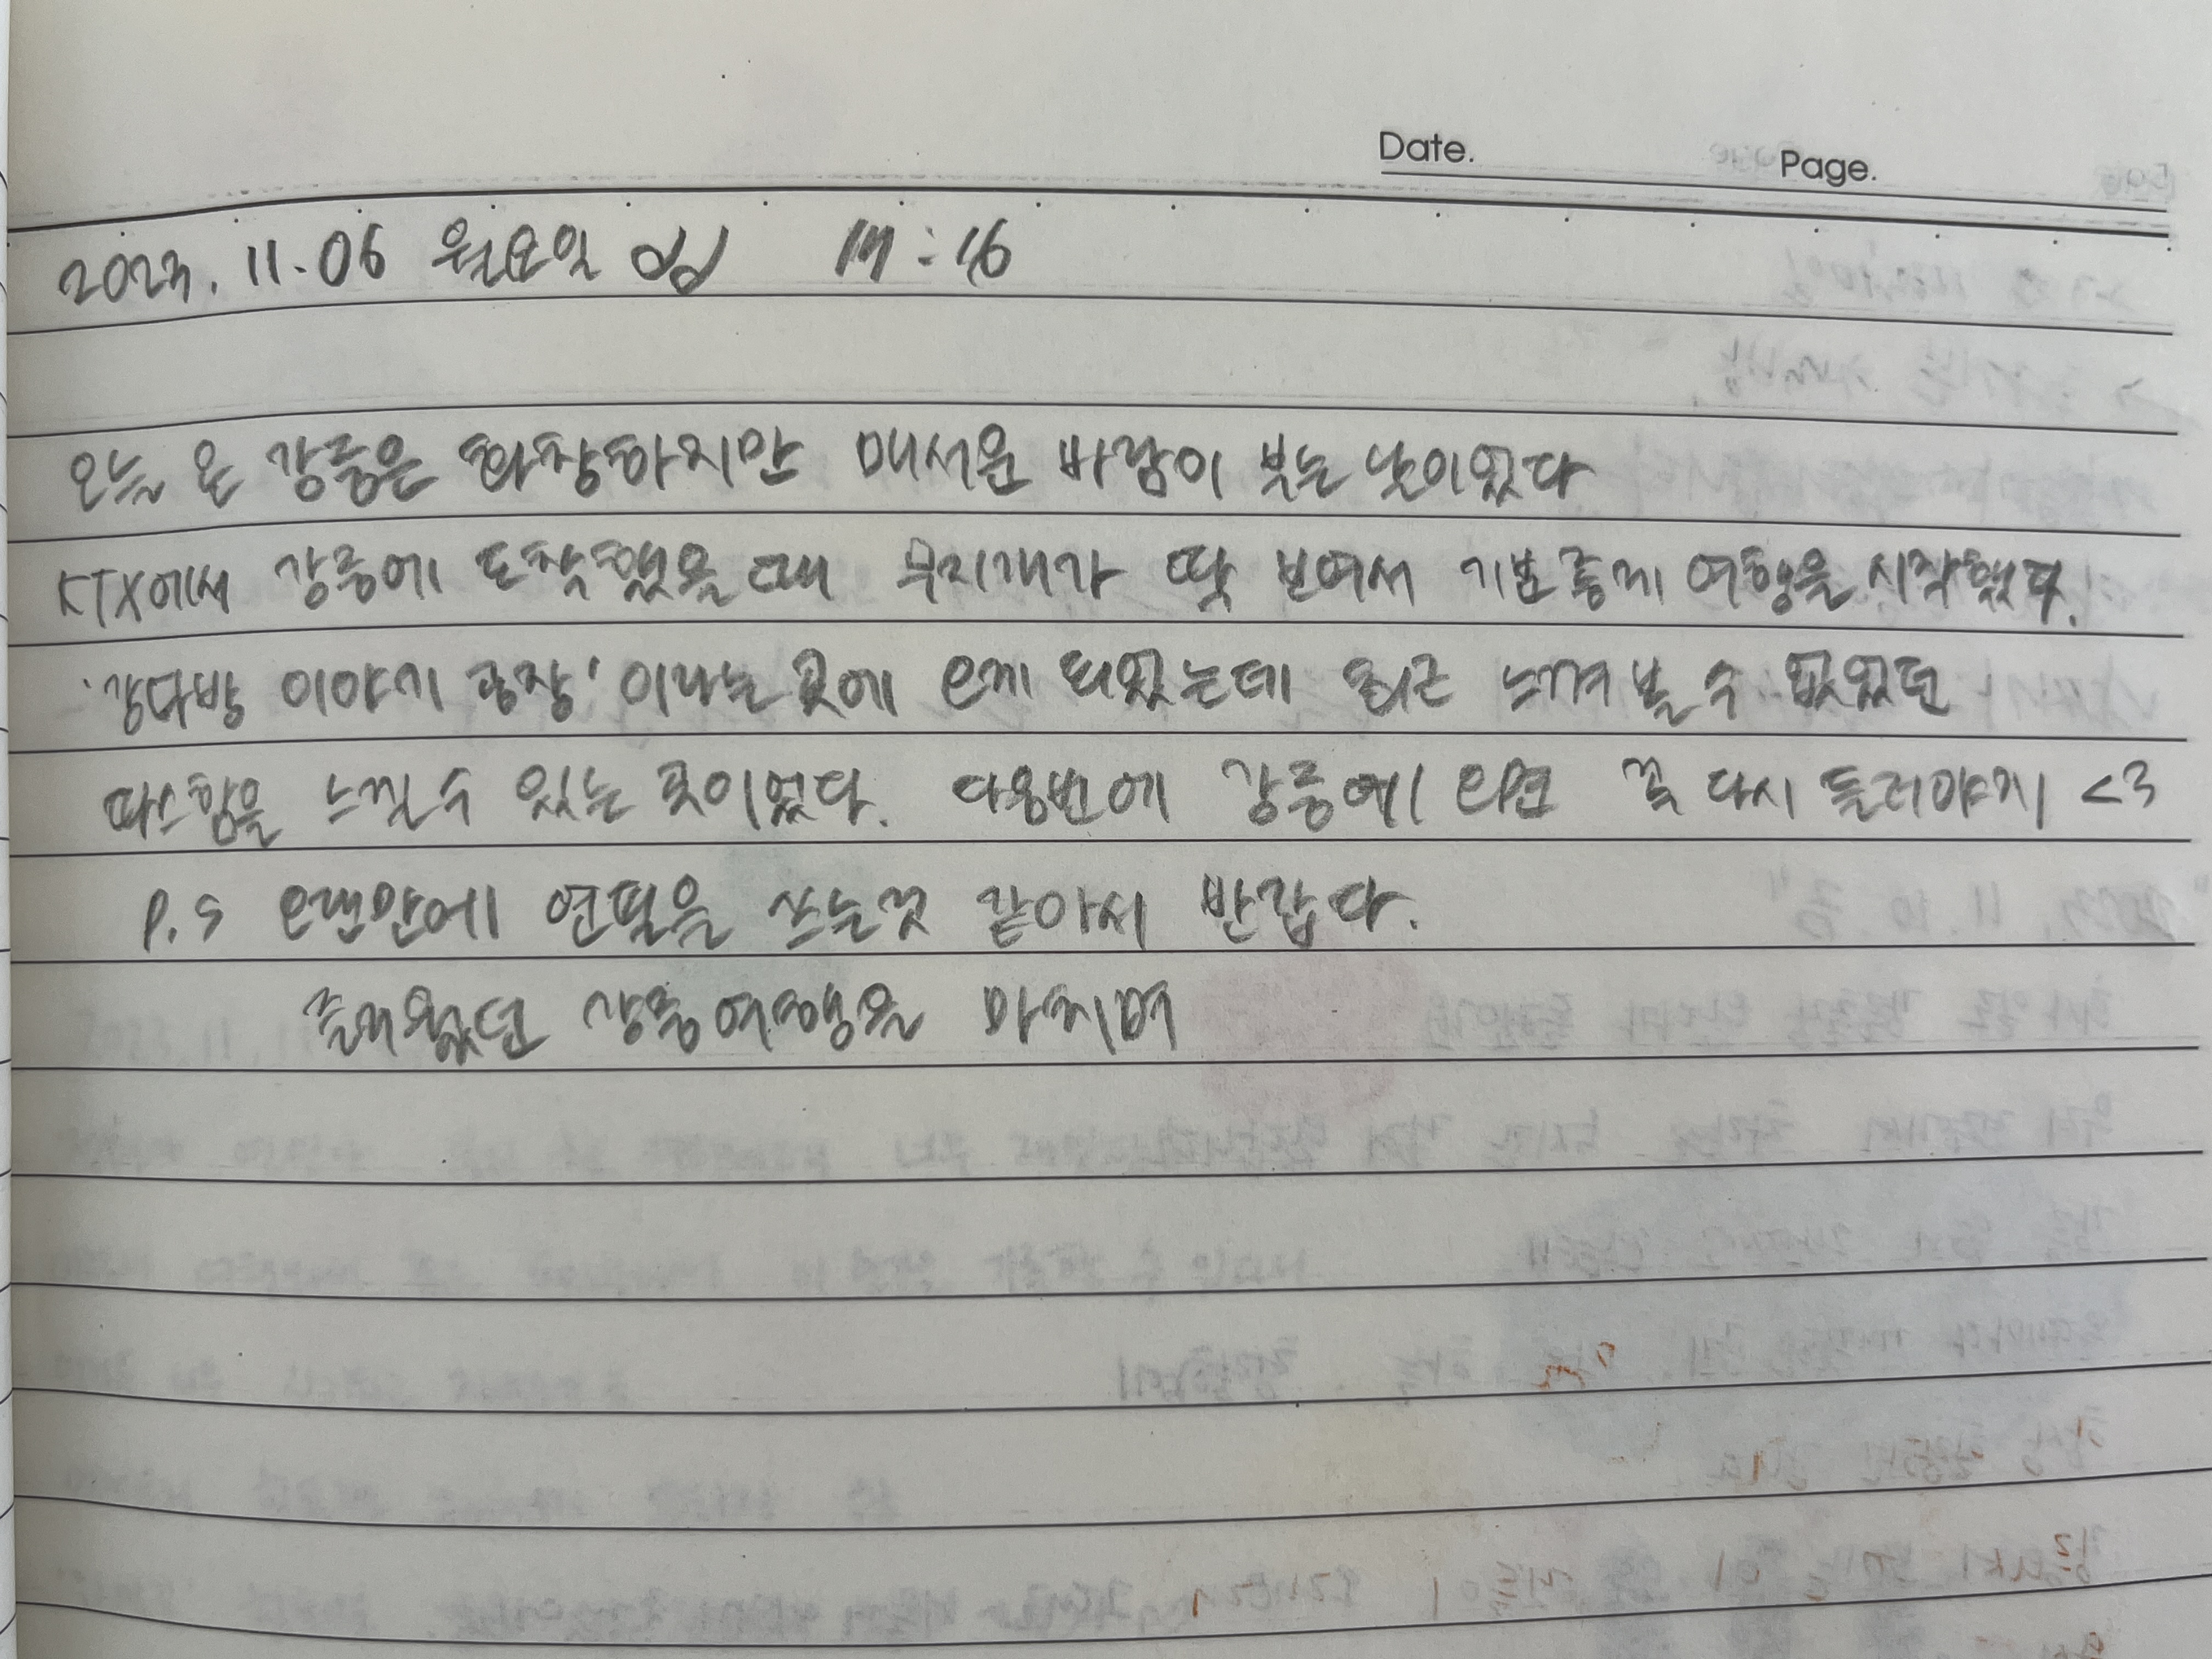 Date. Page.
2023. 11. 06 월요일 17:16
오늘 온 강릉은 화창하지만 매서운 바람이 부는 날이었다
KTX에서 강릉에 도착했을 때 무지개가 딱 보여서 기분좋게 여행을 시작했다.
'강다방 이야기 공장' 이라는 곳에 오게 되었는데 최근 느껴 볼 수 없었던
따스함을 느낄 수 있는 곳이었다. 다음번에 강릉에 오면 꼭 다시 들러야지 <3
P.S 오랜만에 연필을 쓰는것 같아서 반갑다.
즐거웠던 강릉여행을 마치며